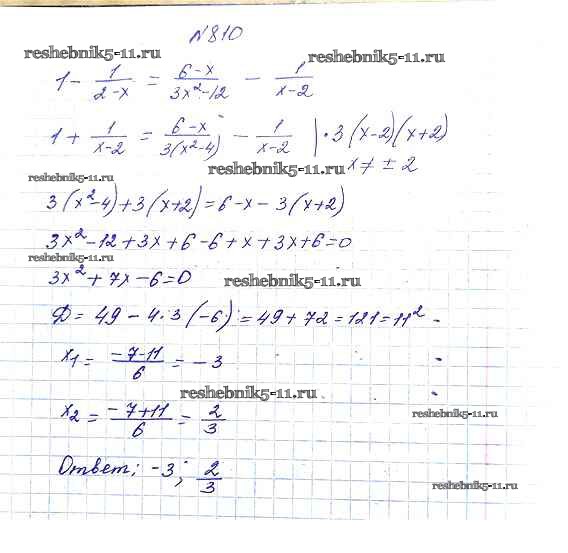 №810
reshebnik5-11.ru reshebnik5-11.ru
1 - 1/(2-x) = (6-x)/(3x²-12) - 1/(x-2)
1 + 1/(x-2) = (6-x)/(3(x²-4)) - 1/(x-2) | ·3(x-2)(x+2)
reshebnik5-11.ru reshebnik5-11.ru x ≠ ± 2
3(x²-4)+3(x+2)=6-x-3(x+2)
3x²-12+3x+6-6+x+3x+6=0
reshebnik5-11.ru
3x²+7x-6=0 reshebnik5-11.ru
Д = 49 - 4·3(-6) = 49+72=121=11²
x₁ = (-7-11)/6 = -3
reshebnik5-11.ru
x₂ = (-7+11)/6 = 2/3
reshebnik5-11.ru
Ответ: -3; 2/3
reshebnik5-11.ru